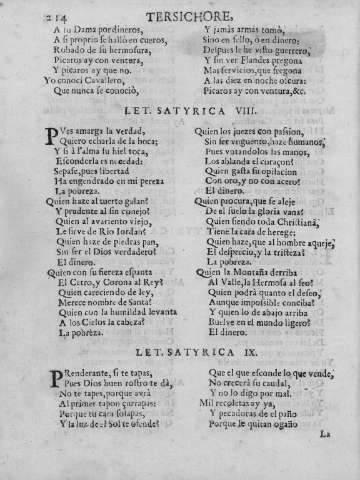 214 TERSICHORE,
A tu Dama por dineros,
A si proprio se halló en cueros,
Robado de su hermosura,
Picaros ay con ventura,
Y picaros ay que no.
Yo conoci Cavallero,
Que nunca se conociò,
Y jamàs armas tomò,
Sino en sello, ò en dinero:
Despues le he visto guerrero,
Y sin ver Flandes pregona
Mas servicios, que fregona
A las diez en noche obscura:
Picaros ay con ventura, &c.
LET. SATYRICA VIII.
PVes amarga la verdad,
Quiero echarla de la boca;
Y si à l'alma su hiel toca,
Esconderla es necedad:
Sepase, pues libertad
Ha engendrado en mi pereza
La pobreza.
Quien haze al tuerto galan?
Y prudente al sin consejo?
Quien al avariento viejo,
Le sirve de Rio Iordan?
Quien haze de piedras pan,
Sin ser el Dios verdadero?
El dinero.
Quien con su fiereza espanta
El Cetro, y Corona al Rey?
Quien careciendo de ley,
Merece nombre de Santa?
Quien con la humildad levanta
A los Cielos la cabeza?
La pobreza.
Quien los juezes con passion,
Sin ser unguento, haze humanos,
Pues untandolos las manos,
Los ablanda el coraçon?
Quien gasta su opilacion
Con oro, y no con azero?
El dinero.
Quien procura, que se aleje
De el suelo la gloria vana?
Quien siendo toda Christiana,
Tiene la cara de herege;
Quien haze, que al hombre aqueje,
El desprecio, y la tristeza?
La pobreza.
Quien la Montaña derriba
Al Valle, la Hermosa al feo?
Quien podrà quanto el deseo,
Aunque impossible conciba?
Y quien lo de abajo arriba
Buelve en el mundo ligero?
El dinero.
LET. SATYRICA IX.
PRenderante, si te tapas,
Pues Dios buen rostro te dà,
No te tapes, porque avrà
Al primer tapon çurrapas:
Porque tu cara solapas,
Y la luz de el Sol te ofende?
Que el que esconde lo que vende,
No crecerà su caudal,
Y no lo digo por mal.
Mil recoletas ay ya,
Y pecadoras de el paño
Porque le quitan ogaño
La